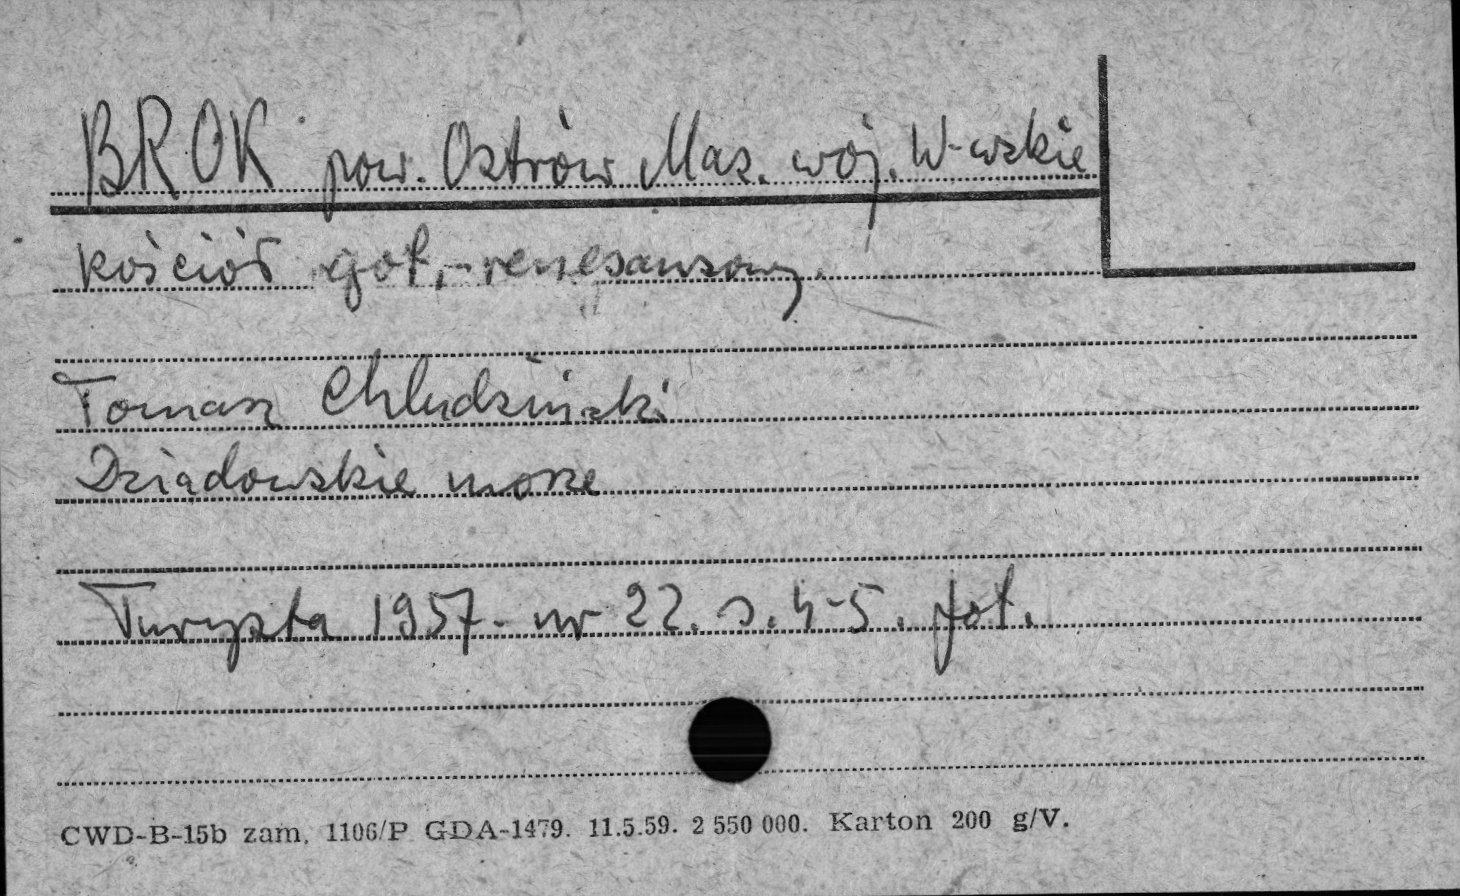 BROK pow. Ostrów Maz. woj. W-wskie
kościół got.-renesansowy.
Tomasz Chludziński
Dziadowskie morze
Turysta 1957. nr 22. s. 4-5. fot.
CWD-B-15b zam. 1106/P GDA-1479. 11.5.59. 2 550 000. Karton 200 g/V.